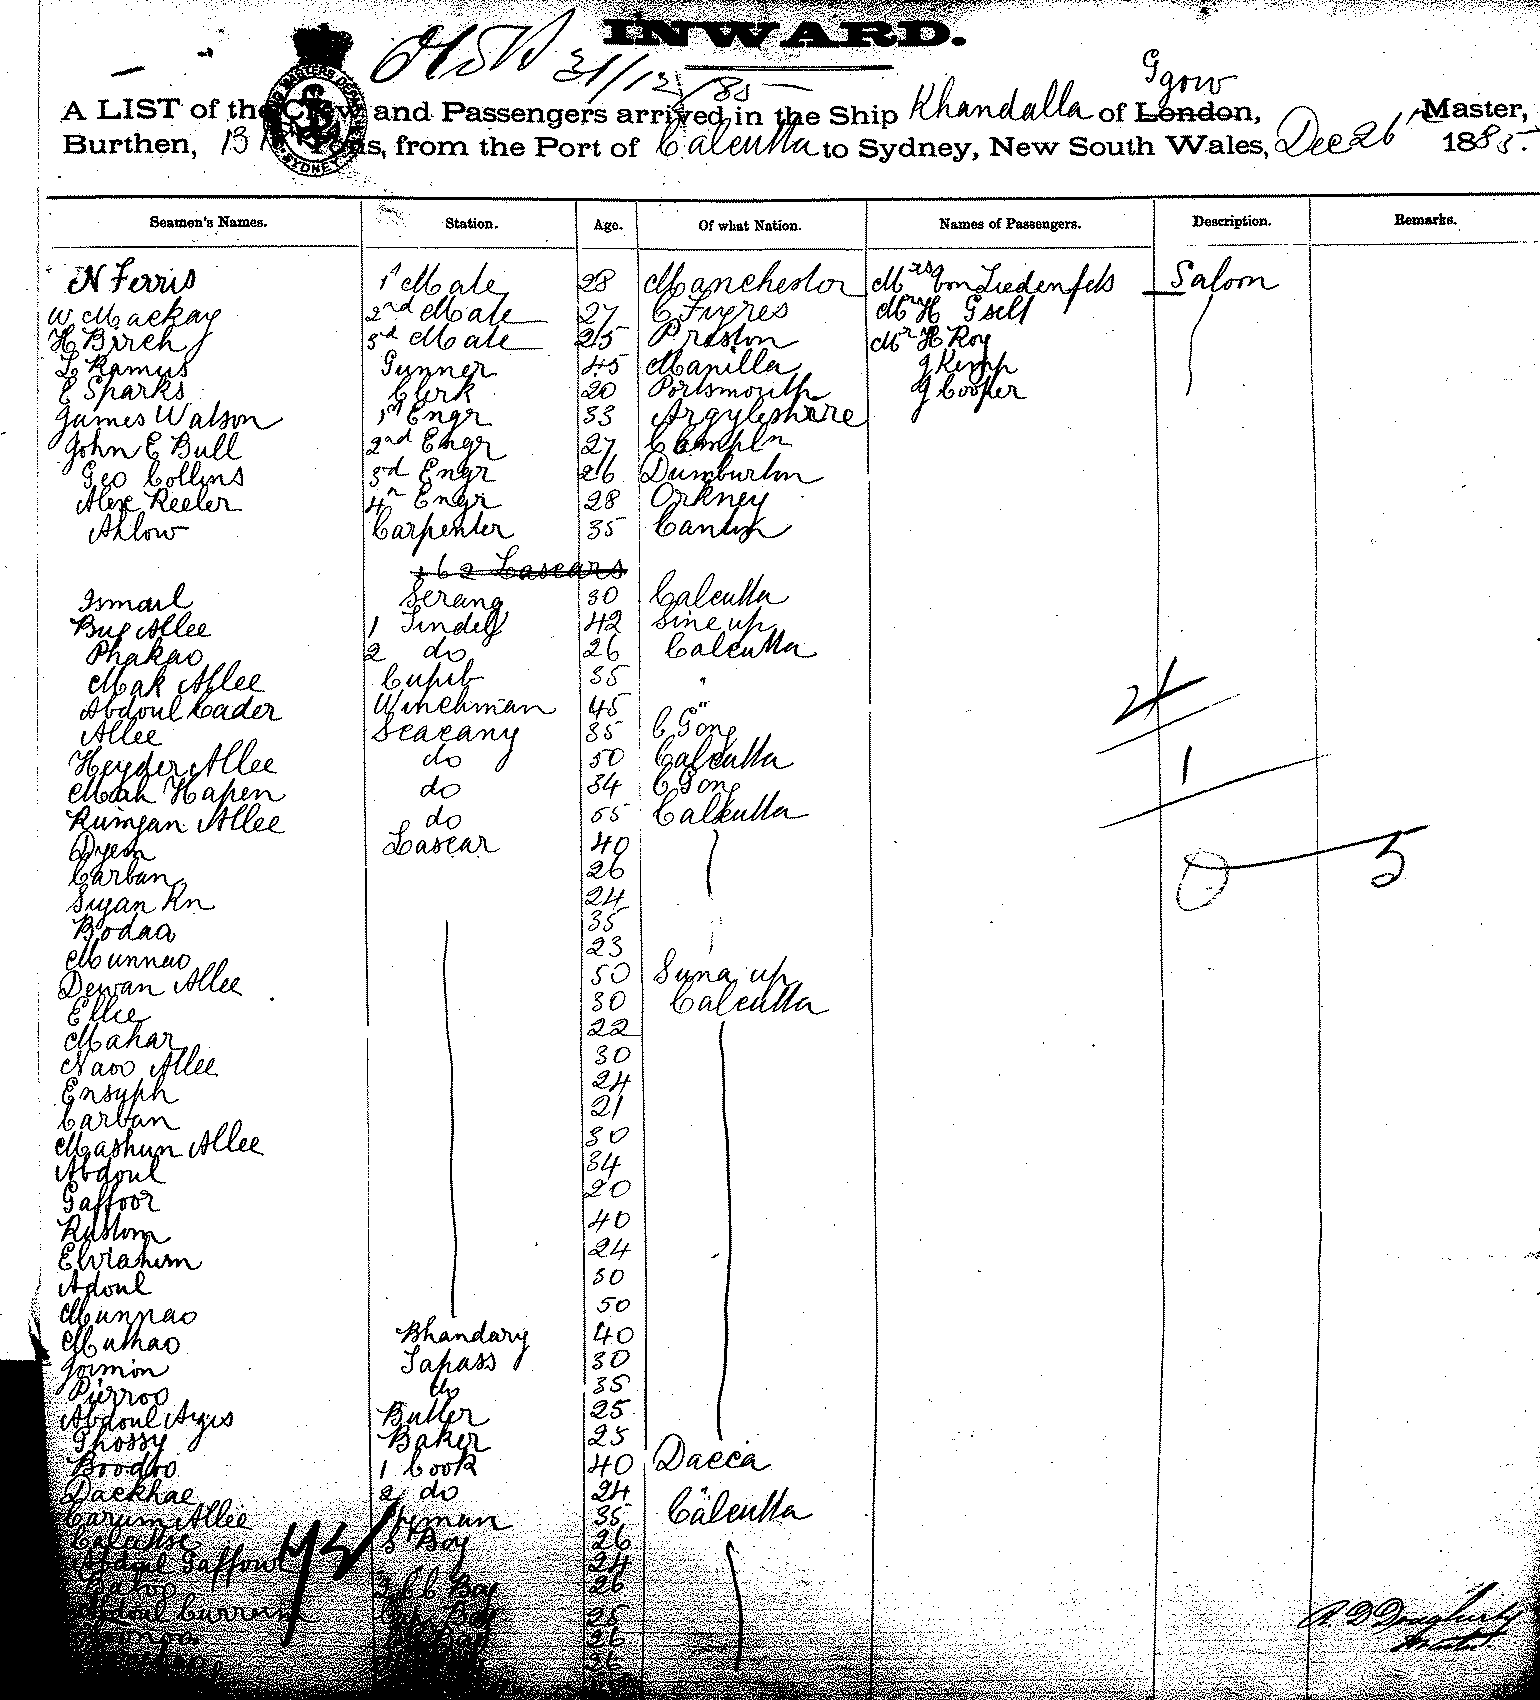 INWARD.
31/12/85
Ggow
A LIST of the Crew and Passengers arrived in the Ship Khandalla of London, Master,
Burthen, Tons, from the Port of Calcutta to Sydney, New South Wales, Dec 26th 1885.
Seamen's Names. Station. Age. Of what Nation. Names of Passengers. Description. Remarks.
N Ferris 1st Mate 28 Manchester Mrs von Liedenfels Saloon
W Mackay 2nd Mate 27 Mr H Gsell
H Birch 3rd Mate 25 Preston Mr H Roy
L Ramus Gunner 45 Manilla J Kemp
E Sparks Clerk 20 Portsmouth J Cooper
James Watson 1st Engr 33 Argyleshire
John E Bull 2nd Engr 27
Geo Collins 3rd Engr 26 Dumburton
Alex Keeler 4th Engr 28 Orkney
Ahlow Carpenter 35 Canton
62 Lascars
Ismail Serang 30 Calcutta
Bug Allee 1 Tindel 42
Phakao 2 do 26 Calcutta
Mak Allee 35 "
Abdoul Cader Winchman 45 "
Allee Seacany 35 C Gong
Heyder Allee do 50 Calcutta
Mah Hapen do 34 C Gong
Rumjan Allee do 55 Calcutta
Dyem Lascar 40
Carban 26
Suyan Kn 24
Bodaa 35
Munnao 23
Dewan Allee 50 Suna up
Ellie 30 Calcutta
Mahar 22
Naoo Allee 30
Ensyph 24
Carban 21
Mashun Allee 30
Abdoul 34
Gaffoor 20
Rustom 40
Ebrahim 24
Adoul 30
Munnao 50
Mumao Bhandary 40
Jormon Topass 30
Pierroo do 35
Abdoul Azis Butler 25
Ghossy Baker 25
Boodoo 1 Cook 40 Dacca
Dackhae 2 do 24 "
Carum Allee 35 Calcutta
Boy 26
Abdul Gaffour 24
Boy 26
Abdoul Currum Boy 25
26
24
1
0 3
43